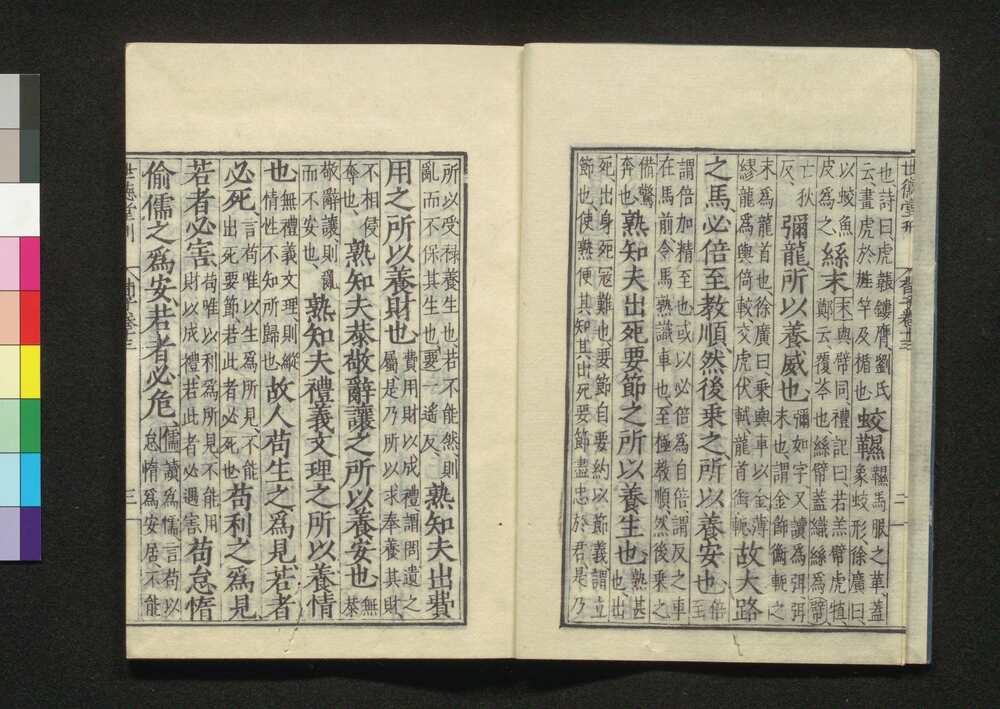 世德堂刊 荀子卷十三 二
也詩曰虎韔鏤膺劉氏云畫虎於旌竿及楯也蛟韅韅馬服之革蓋象蛟形徐廣曰
以蛟魚皮爲之絲末末與幦同禮記曰君羔幦虎犆鄭云覆笭也絲幦蓋織絲爲幦
亡狄反彌龍所以養威也彌如字又讀爲弭弭末也謂金飾衡軛之
末爲龍首也徐廣曰乘輿車以金薄繆龍爲輿倚較文虎伏軾龍首銜軛故大路
之馬必倍至教順然後乘之所以養安也倍至
謂倍加精至也或以必倍爲自倍謂反之車在馬前令馬熟識車也至極教順然後乘之
備驚奔也熟知夫出死要節之所以養生也熟甚也出
死出身死冦難也要節自要約以節義謂立節也使熟便其知其出死要節盡忠於君是乃
所以受祿養生也若不能然則亂而不保其生也要一遙反熟知夫出費
用之所以養財也費用財以成禮謂問遺之屬是乃所以求奉養其財
不相侵奪也熟知夫恭敬辭讓之所以養安也無恭
敬辭讓則亂而不安也熟知夫禮義文理之所以養情
也無禮義文理則縱情性不知所歸也故人苟生之爲見若者
必死言苟唯以生爲所見不能出死要節若此者必死也苟利之爲見
若者必害苟唯以利爲所見不能用財以成禮若此者必遇害苟怠惰
偷儒之爲安若者必危儒讀爲懦言苟以怠惰爲安居不能
世德堂刊 荀子卷十三 三